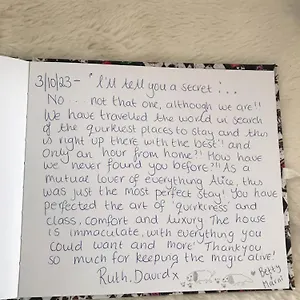 3/10/23 - 'I'll tell you a secret'...
No - not that one, although we are!!
We have travelled the world in search
of the quirkiest places to stay and this
is right up there with the best! and
only an hour from home?! How have
we never found you before?!! As a
mutual lover of everything Alice, this
was just the most perfect stay! You have
perfected the art of 'quirkiness' and
class, comfort and luxury. The house
is immaculate, with everything you
could want and more! Thankyou
so much for keeping the magic alive!
Ruth, David x
Betty